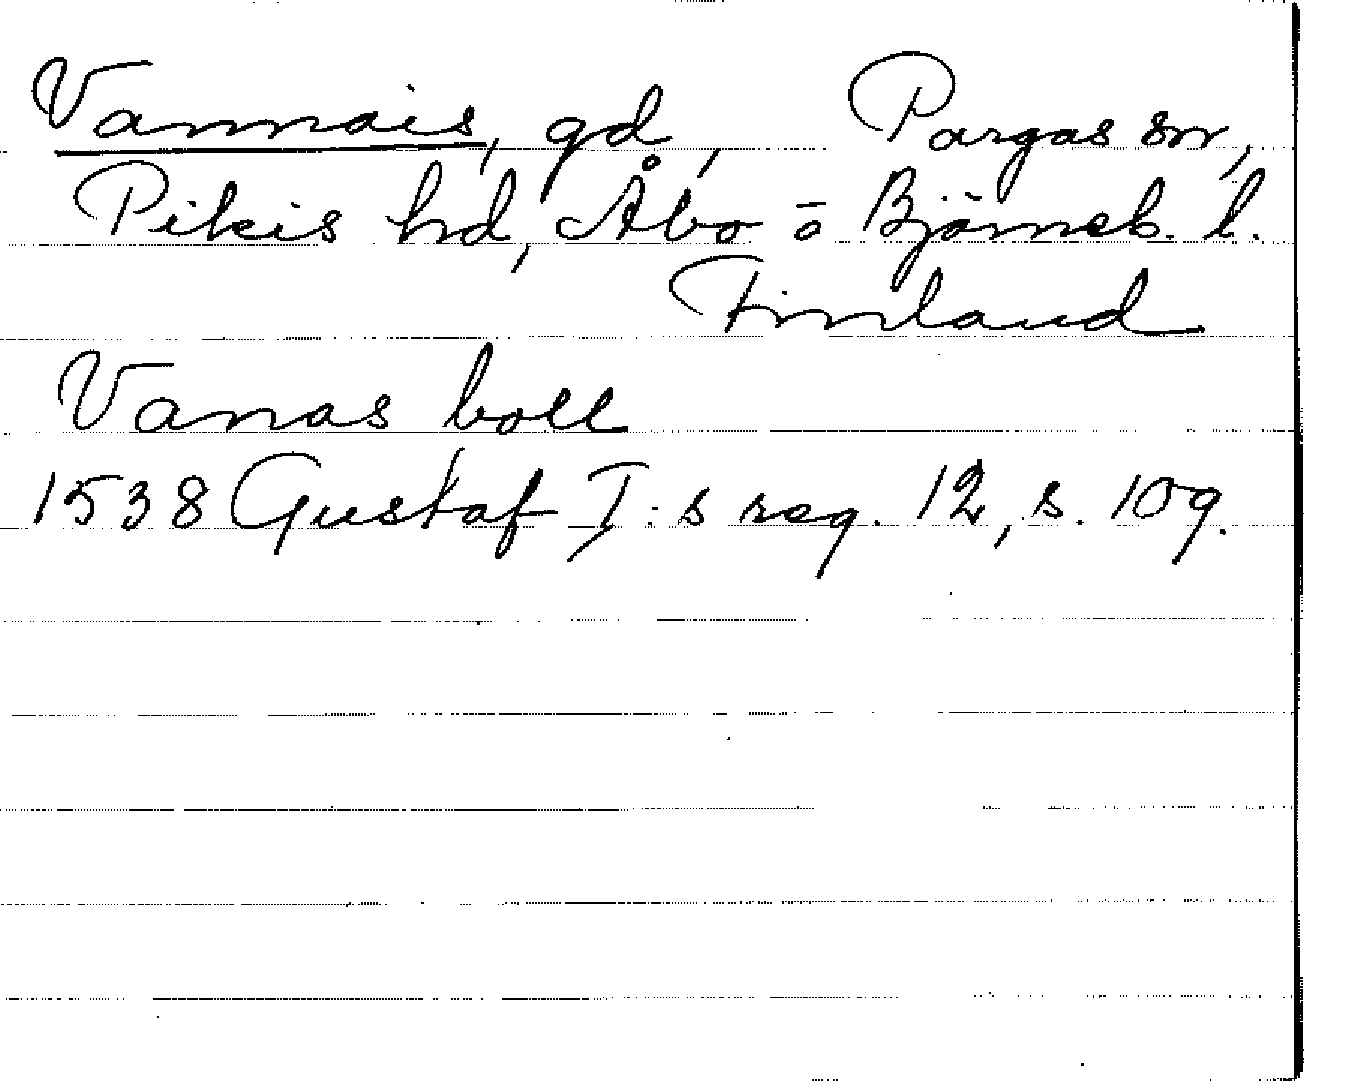 Vannais, gd, Pargas sn,
Pikis hd, Åbo o Björneb. l.
Finland
Vanas boll
1538 Gustaf I:s reg. 12, s. 109.